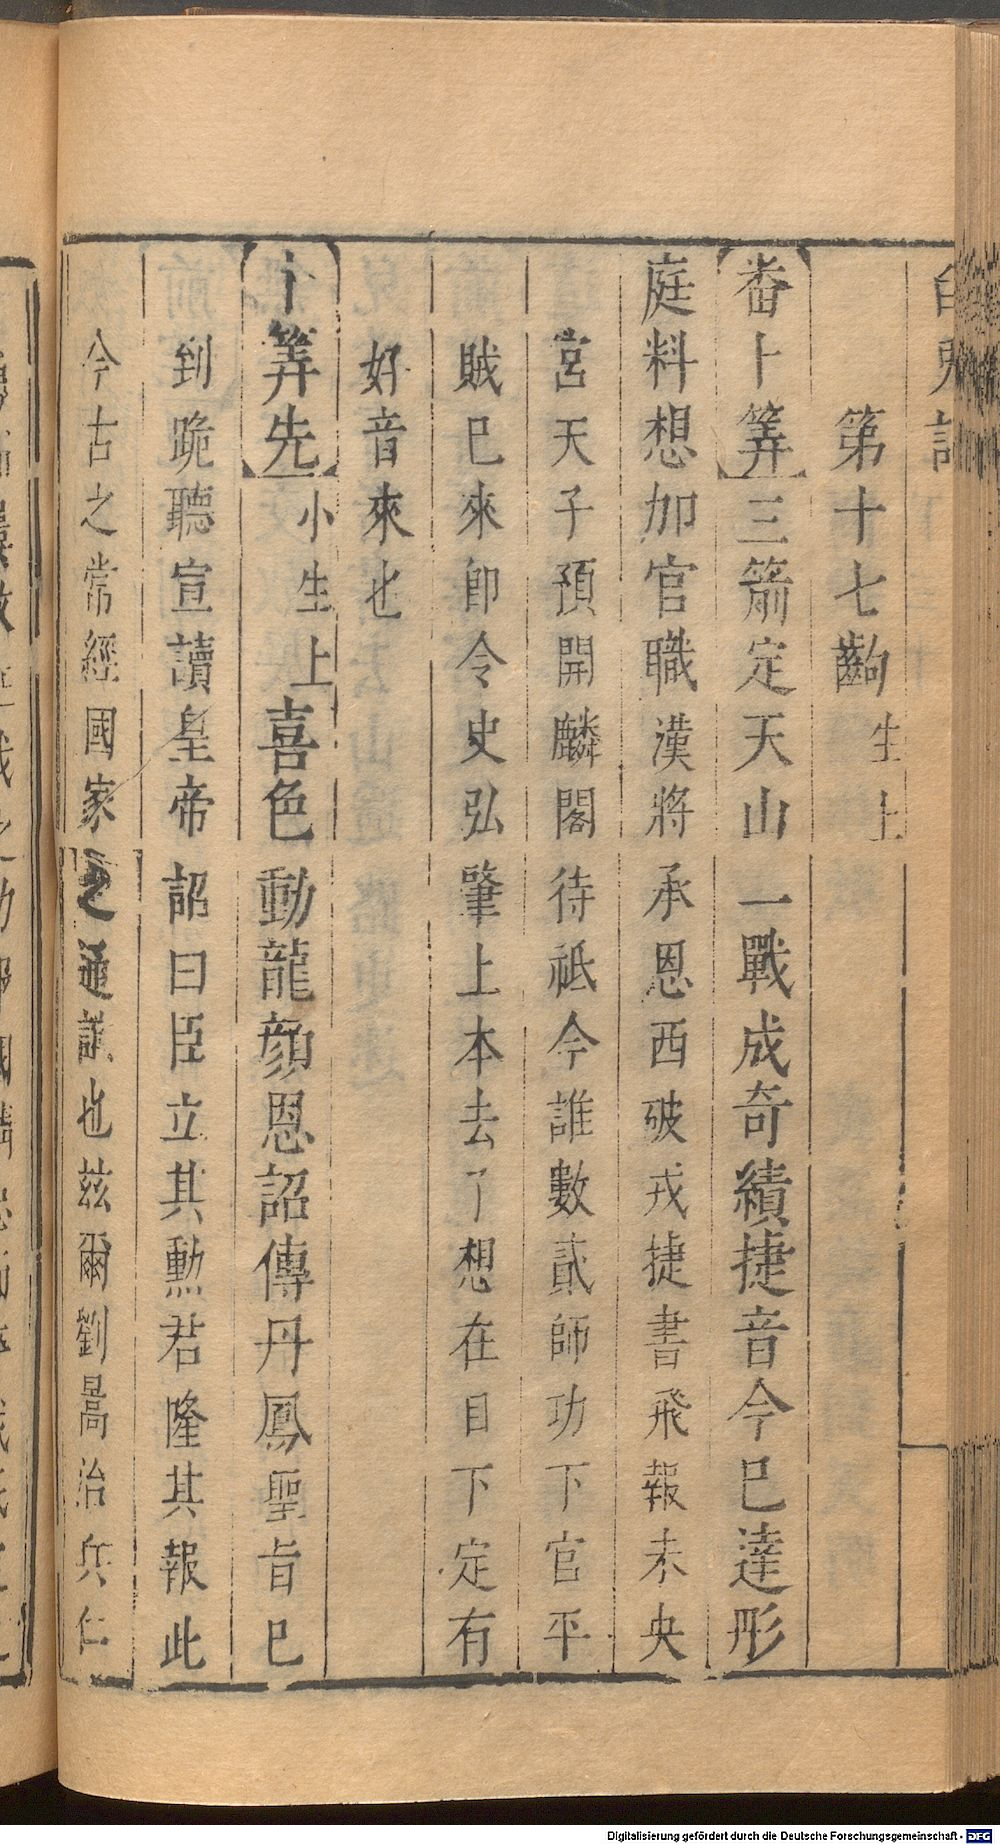 白兎記
第十七齣 生上
番卜筭 三箭定天山一戰成奇績捷音今巳達彤
庭料想加官職漢將承恩西破戎捷書飛報未央
宮天子預開麟閣待祗今誰數貳師功下官平
賊巳來卽令史弘肇上本去了想在目下定有
好音來也
卜筭先 小生上 喜色動龍顔恩詔傳丹鳳聖旨巳
到跪聽宣讀皇帝詔曰臣立其勲君隆其報此
今古之常經國家之通議也茲爾劉暠治兵仁
Digitalisierung gefördert durch die Deutsche Forschungsgemeinschaft - DFG